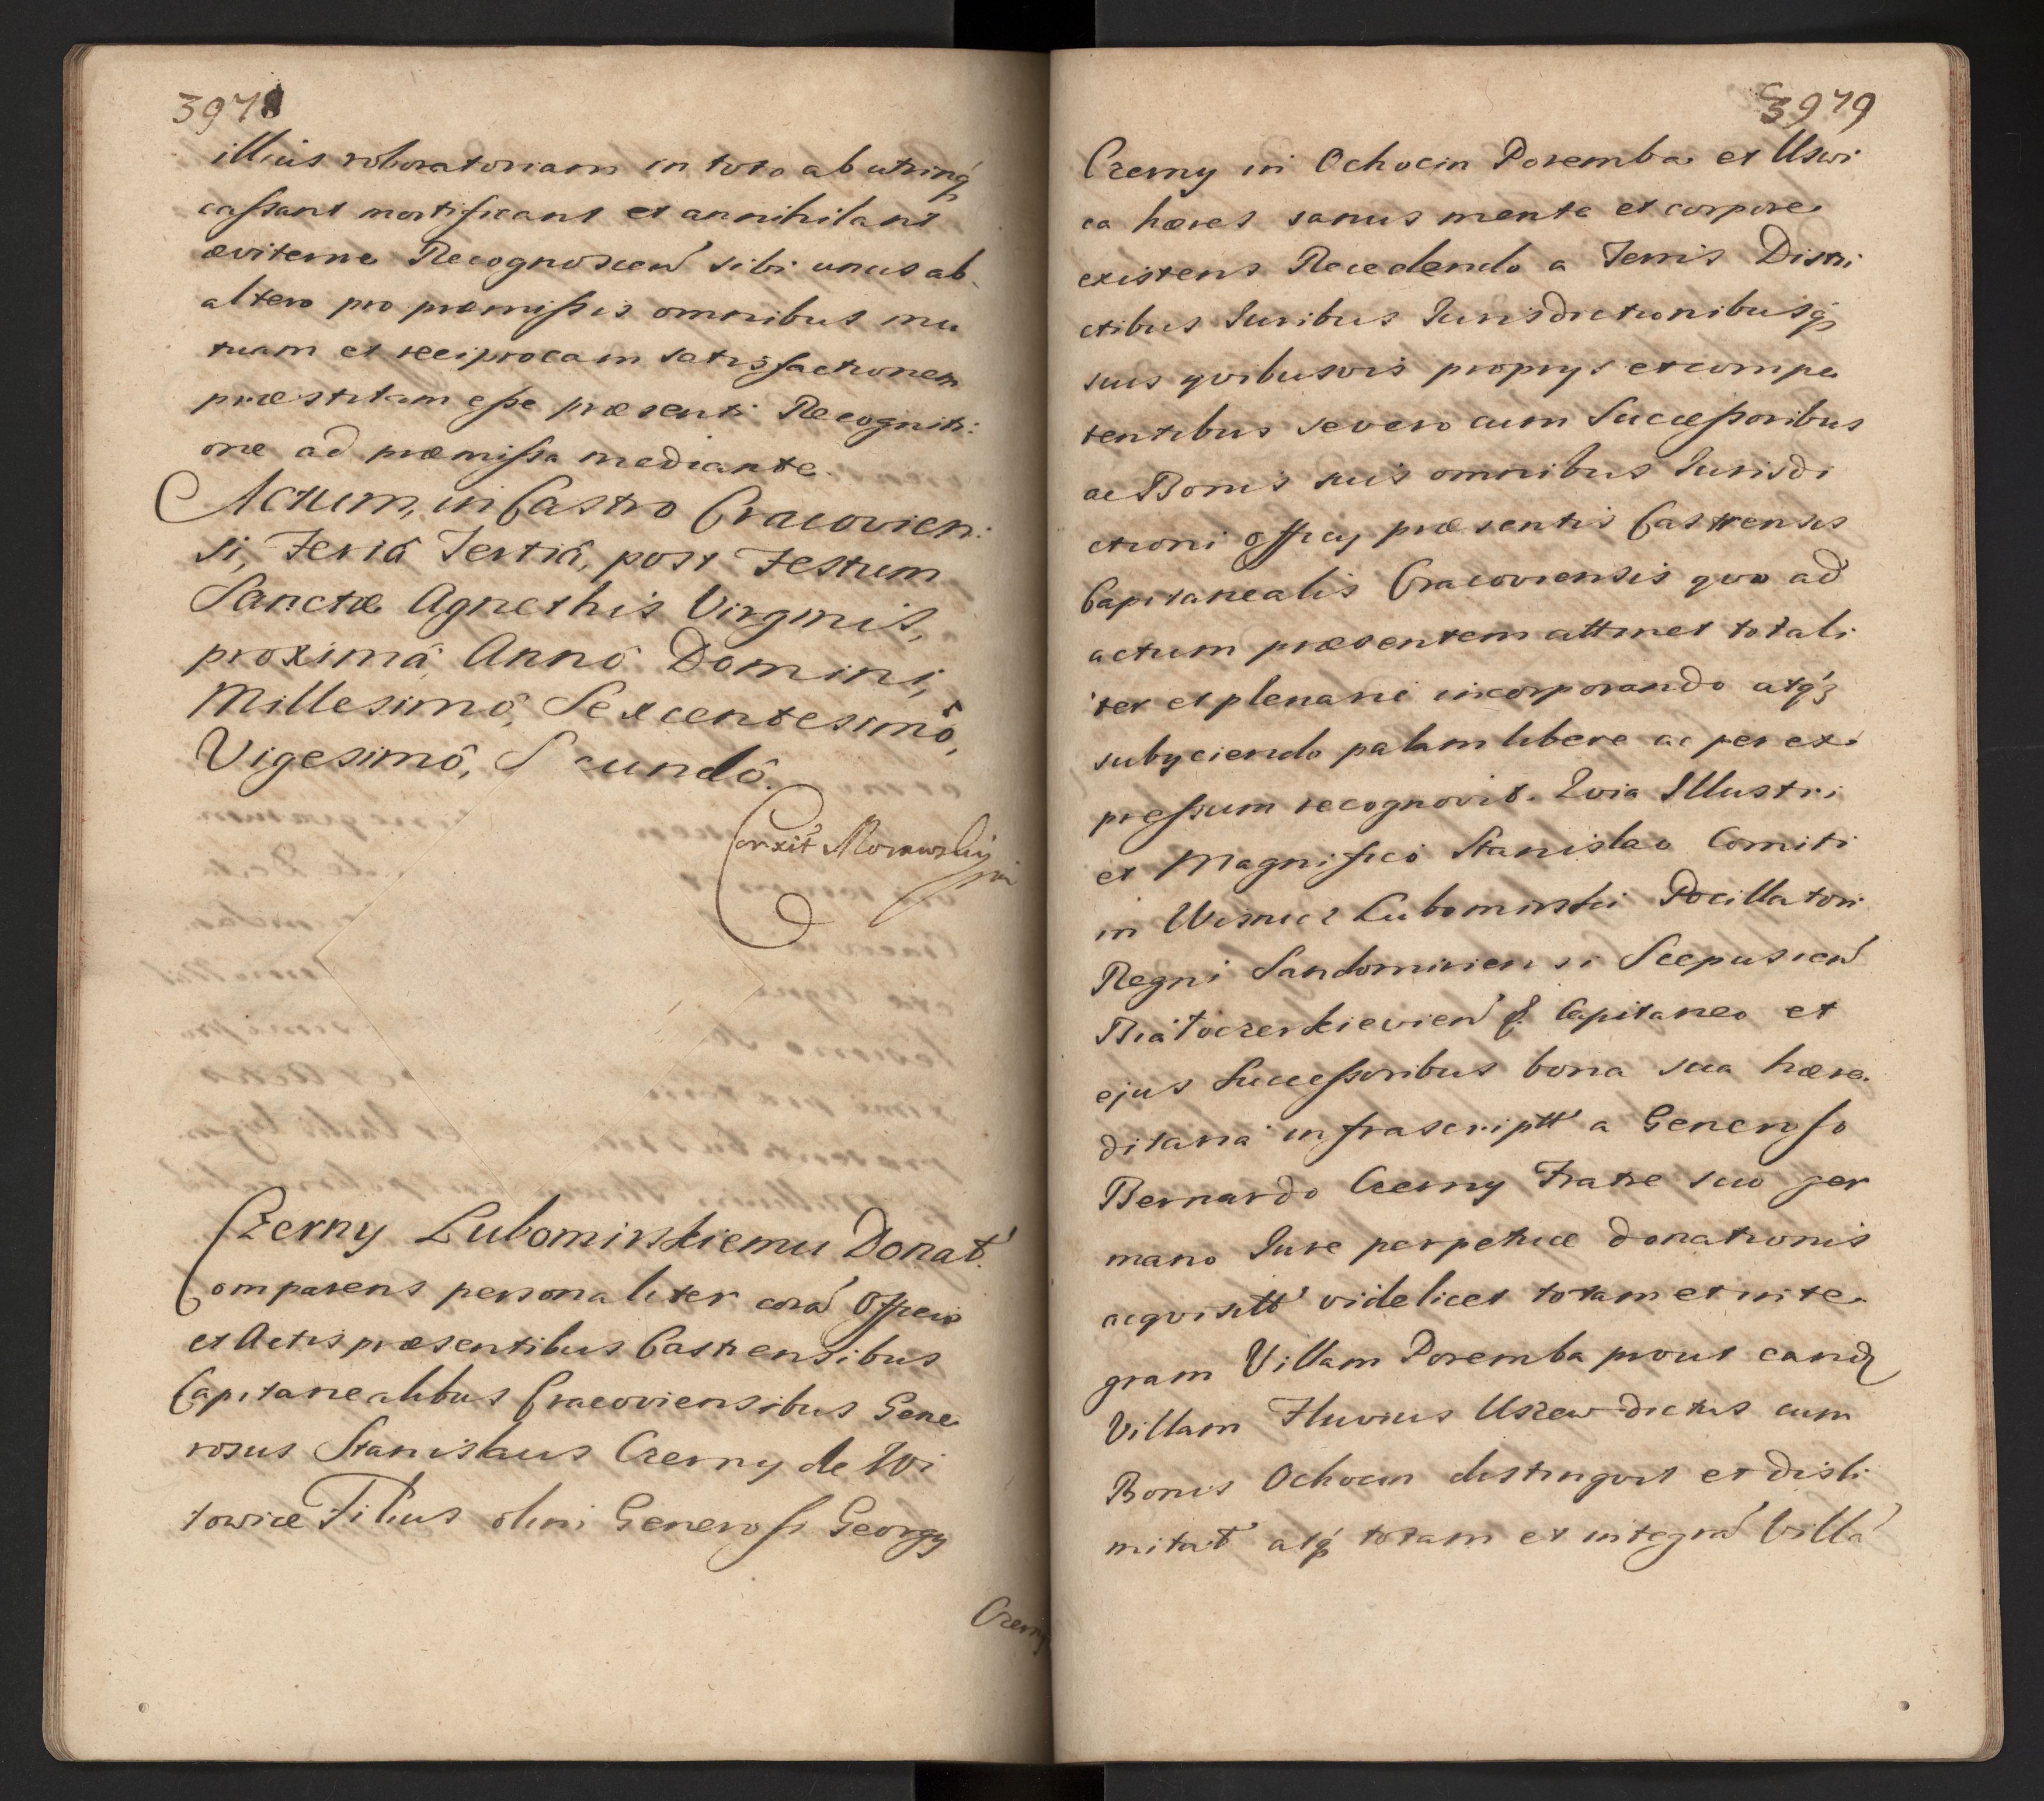 3978
illius roboratoriam in toto ab utrinq́
caſsant mortificant et annihilant
æviterne Recognoscen̄ sibi unus ab
altero pro præmiſsis omnibus mu
tuam et reciprocam satisfactionem
præstitam eſse præsenti Recogniti:
one ad præmiſsa mediante.
Actum, in Castro Cracovien:
si, Feriâ Tertiâ, post Festum
Sanctæ Agnethis Virginis,
proximâ Annô Domini,
Millesimô, Sexcentesimô,
Vigesimô, Secundô.
Corrxit Morawski
Czerny Lubomirskiemu Donat̄.
Comparens personaliter corā Officio
et Actis præsentibus Castrensibus
Capitanealibus Cracoviensibus Gene
rosus Stanislaus Czerny de Wi
towice Filius olim Generosi Georgy
Czerny
3979
Czerny in Ochocin Poremba et Uswi
ca hæres sanus mente et corpore
existens Recedendo a Terris Distri
ctibus Juribus Jurisdictionibusq́
suis qvibusvis proprys et compe
tentibus se vero cum Succeſsoribus
ac Bonis suis omnibus Jurisdi
ctioni officy præsentis Castrensis
Capitanealis Cracoviensis qvo ad
actum præsentem attinet totali
ter et plenarie incorporando atq́3
subyciendo palam libere ac per ex
preſsum recognovit. Qvia Illustri
et Magnifico Stanislao Comiti
in Wisnicz Lubomirski Pocillatori
Regni Sandomiriensi Scepusien̄
Białocerkievien̄ &. Capitaneo et
ejus Succeſsoribus bona sua hære
ditaria infrascriptt̄ a Generoso
Bernardo Czerny Fratre suo ger
mano Jure perpetuæ donationis
acqvisitt̄ videlicet totam et inte
gram Villam Poremba prout eand
Villam Fluvius Uszew dictus cum
Bonis Ochocin distingvit et disli
mitat̄ atq́ totam et integrā Villā